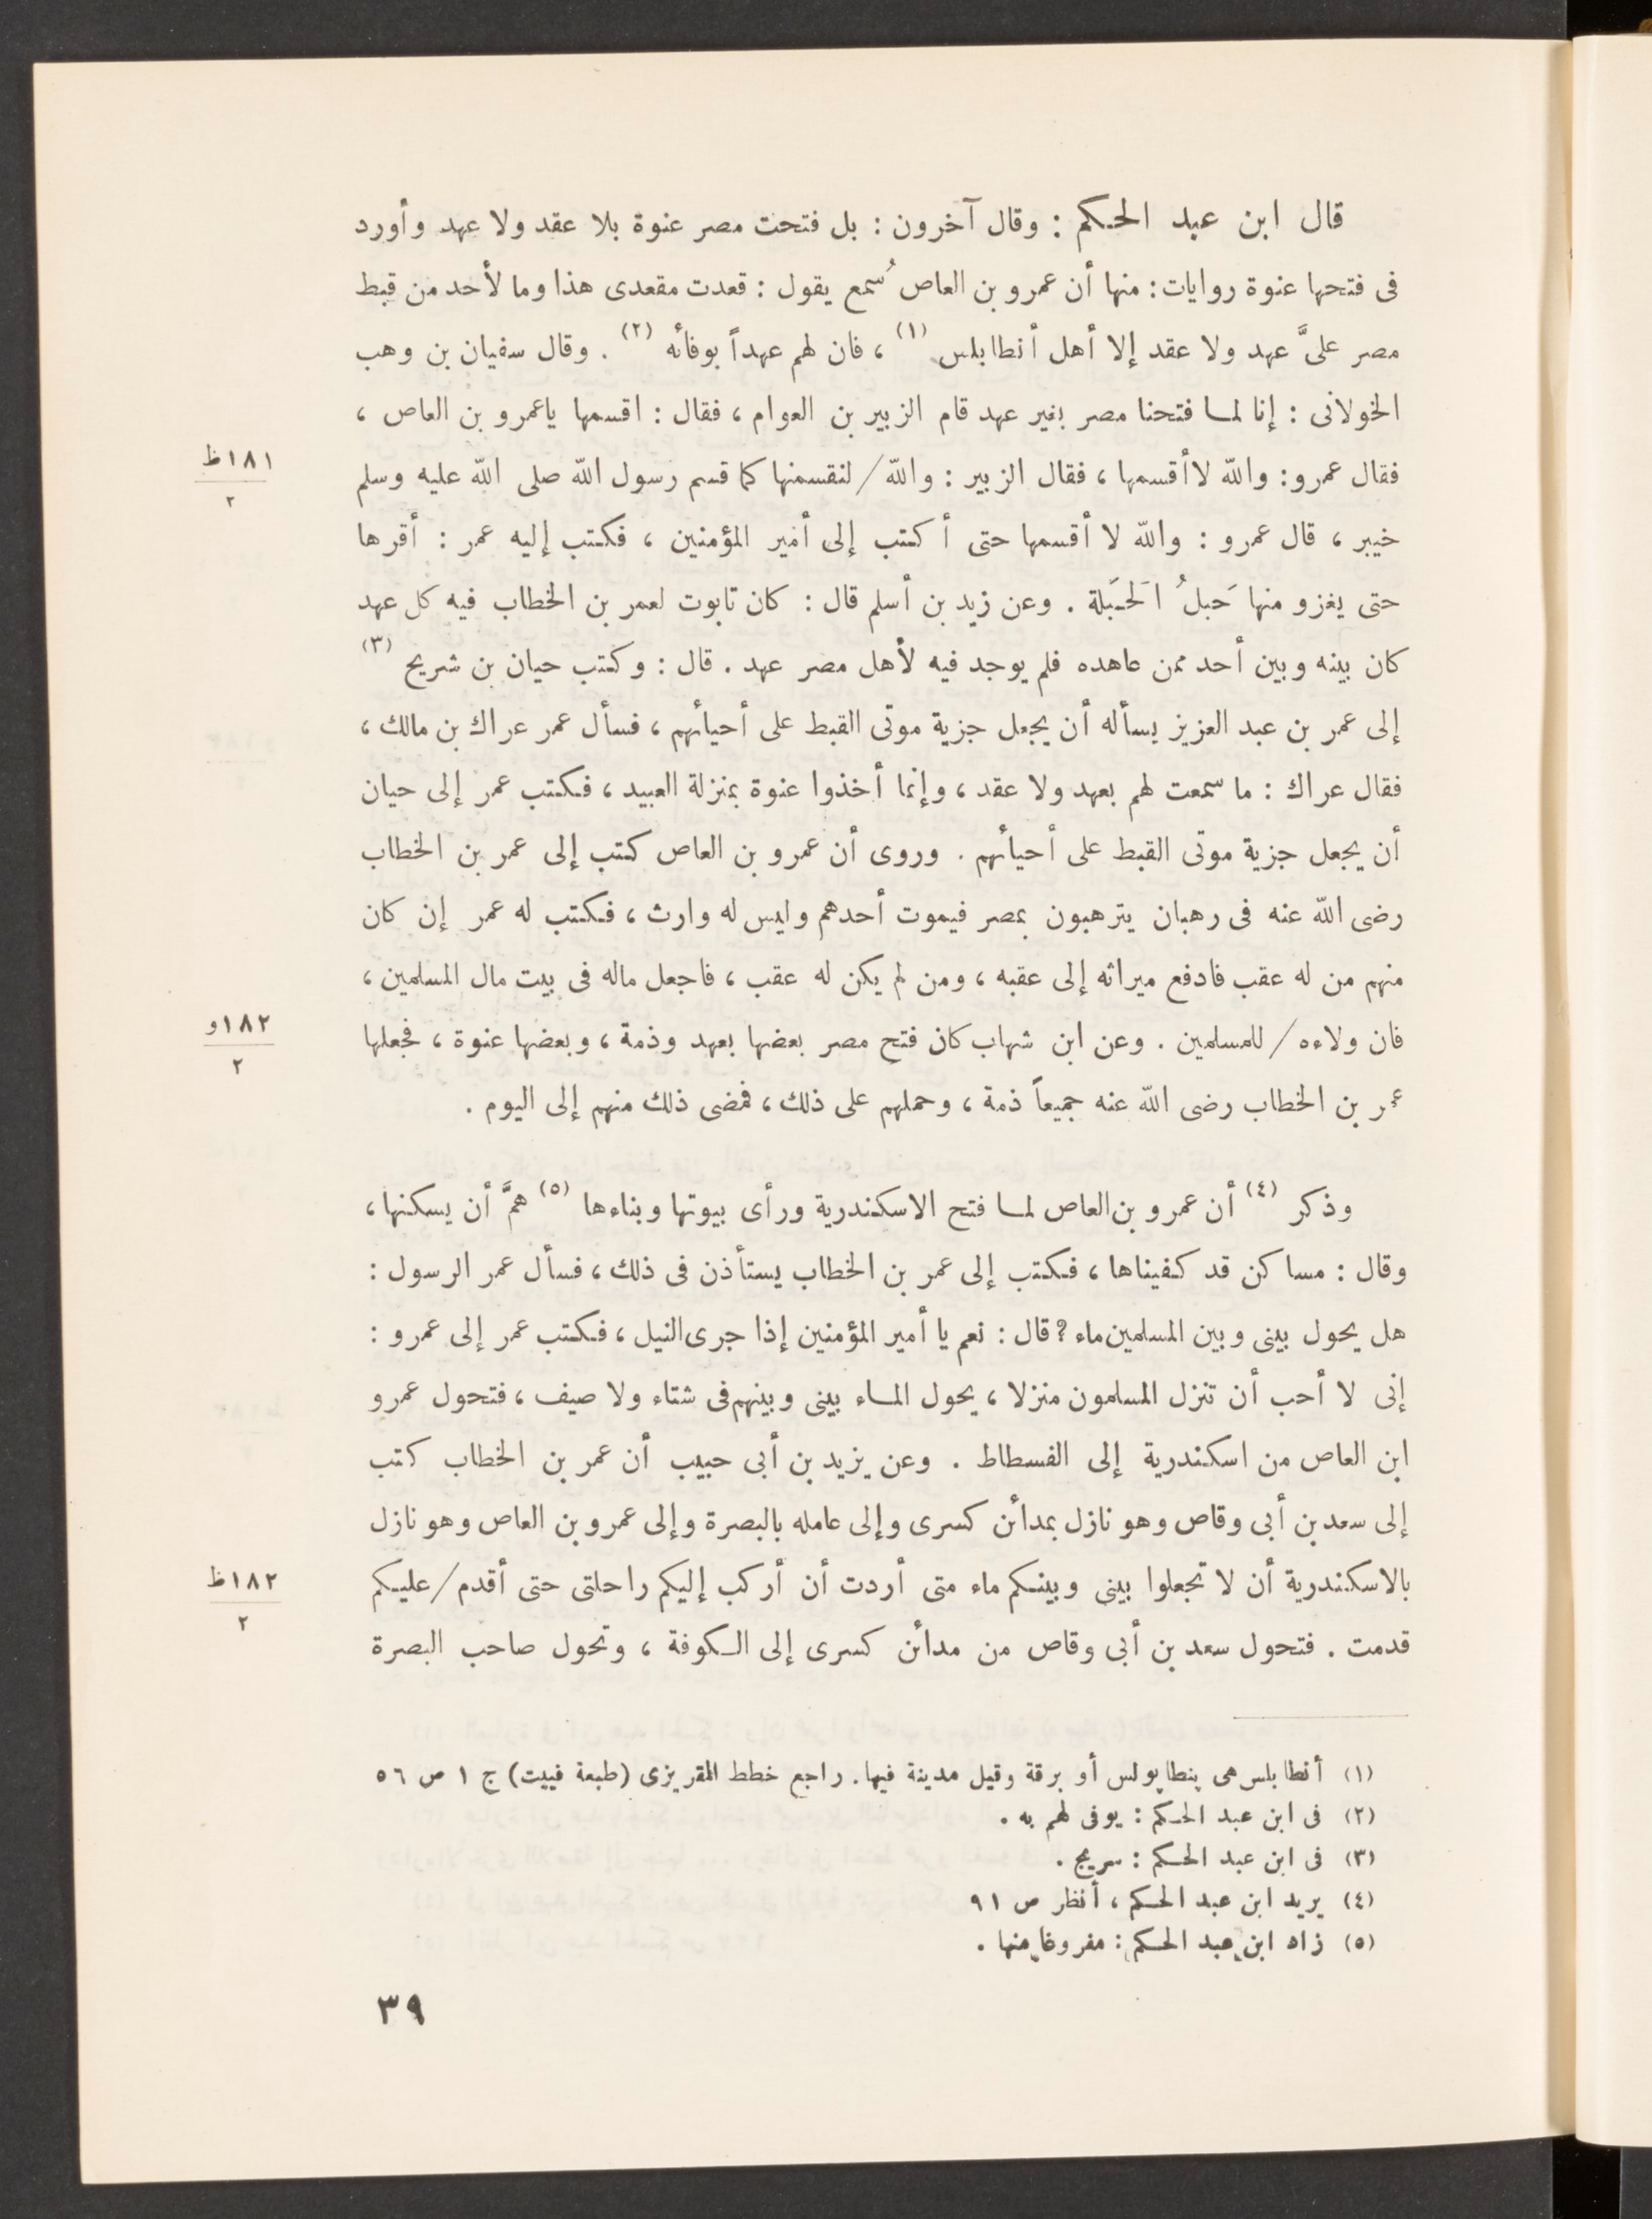 قال ابن عبد الحكم : وقال آخرون : بل فتحت مصر عنوة بلا عقد ولا عهد وأورد
فى فتحها عنوة روايات : منها أن عمرو بن العاص سُمع يقول : قعدت مقعدى هذا وما لأحد من قبط
مصر علىَّ عهد ولا عقد إلا أهل أنطابلس (١) ، فان لهم عهداً بوفائه (٢) . وقال سفيان بن وهب
الخولانى : إنا لما فتحنا مصر بغير عهد قام الزبير بن العوام ، فقال : اقسمها ياعمرو بن العاص ،
فقال عمرو : والله لا أقسمها ، فقال الزبير : والله / لنقسمنها كما قسم رسول الله صلى الله عليه وسلم
١٨١ظ
٢
خيبر ، قال عمرو : والله لا أقسمها حتى أكتب إلى أمير المؤمنين ، فكتب إليه عمر : أقرها
حتى يغزو منها حَبلُ الحَبَلة . وعن زيد بن أسلم قال : كان تابوت لعمر بن الخطاب فيه كل عهد
كان بينه وبين أحد ممن عاهده فلم يوجد فيه لأهل مصر عهد . قال : وكتب حيان بن شريح (٣)
إلى عمر بن عبد العزيز يسأله أن يجعل جزية موتى القبط على أحيائهم ، فسأل عمر عراك بن مالك ،
فقال عراك : ما سمعت لهم بعهد ولا عقد ، وإنما أخذوا عنوة بمنزلة العبيد ، فكتب عمر إلى حيان
أن يجعل جزية موتى القبط على أحيائهم . وروى أن عمرو بن العاص كتب إلى عمر بن الخطاب
رضى الله عنه فى رهبان يترهبون بمصر فيموت أحدهم وليس له وارث ، فكتب له عمر إن كان
منهم من له عقب فادفع ميراثه إلى عقبه ، ومن لم يكن له عقب ، فاجعل ماله فى بيت مال المسلمين ،
فان ولاءه / للمسلمين . وعن ابن شهاب كان فتح مصر بعضها بعهد وذمة ، وبعضها عنوة ، فجعلها
١٨٢و
٢
عمر بن الخطاب رضى الله عنه جميعاً ذمة ، وحملهم على ذلك ، فمضى ذلك منهم إلى اليوم .
وذكر (٤) أن عمرو بن العاص لما فتح الاسكندرية ورأى بيوتها وبناءها (٥) همَّ أن يسكنها ،
وقال : مساكن قد كفيناها ، فكتب إلى عمر بن الخطاب يستأذن فى ذلك ، فسأل عمر الرسول :
هل يحول بينى وبين المسلمين ماء ؟ قال : نعم يا أمير المؤمنين إذا جرى النيل ، فكتب عمر إلى عمرو :
إنى لا أحب أن تنزل المسلمون منزلا ، يحول الماء بينى وبينهم فى شتاء ولا صيف ، فتحول عمرو
ابن العاص من اسكندرية إلى الفسطاط . وعن يزيد بن أبى حبيب أن عمر بن الخطاب كتب
إلى سعد بن أبى وقاص وهو نازل بمدائن كسرى وإلى عامله بالبصرة وإلى عمرو بن العاص وهو نازل
بالاسكندرية أن لا تجعلوا بينى وبينكم ماء متى أردت أن أركب إليكم راحلتى حتى أقدم / عليكم
١٨٢ظ
٢
قدمت . فتحول سعد بن أبى وقاص من مدائن كسرى إلى الكوفة ، وتحول صاحب البصرة
(١) أنطابلس هى پنطاپولس أو برقة وقيل مدينة فيها . راجع خطط المقريزى (طبعة فييت) ج ١ ص ٥٦
(٢) فى ابن عبد الحكم : يوفى لهم به .
(٣) فى ابن عبد الحكم : سريج .
(٤) يريد ابن عبد الحكم ، أنظر ص ٩١
(٥) زاد ابن عبد الحكم : مفروغا منها .
٣٩